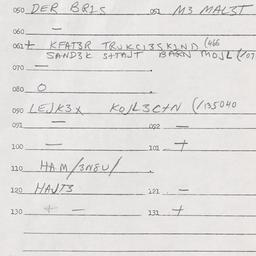 050 DER BR1S 051 M3 MAL3T
060 —
061 + KFAT3R TRUKC135K1ND (466
SAND3K STTAJT BARN MOJL (/07
070 — .
080 O .
090 LEJK3X KOJL3C+N (/135040
091 — 092 —
100 — 101 +
110 HAM/3N8U/
120 HAJT3 121 —
130 + — 131 +